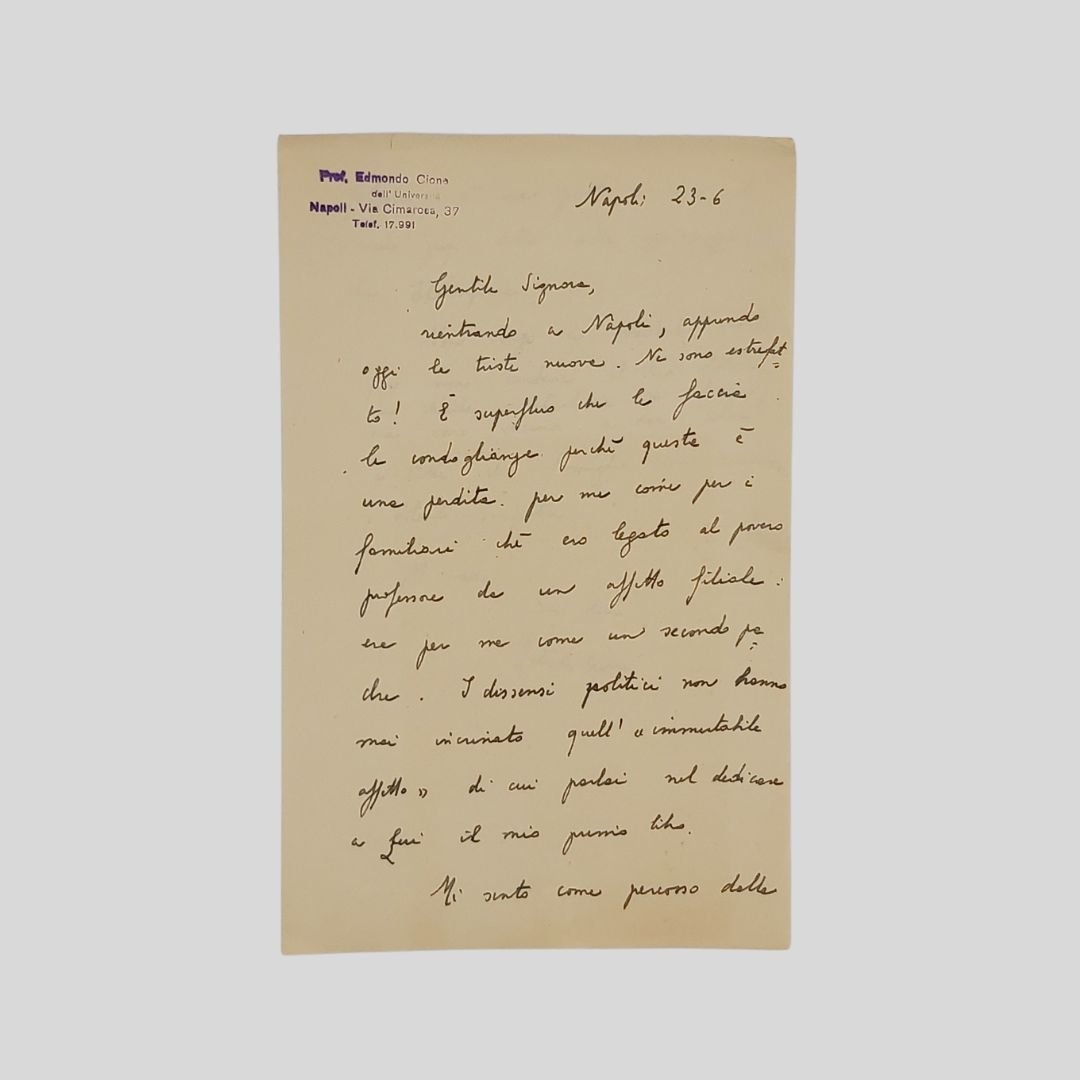 Prof. Edmondo Cione
dell' Università
Napoli - Via Cimarosa, 37
Telef. 17.991
Napoli 23-6
Gentile Signora,
rientrando a Napoli, apprendo
oggi la triste nuova. Ne sono estrefat=
to! È superfluo che le faccia
le condoglianze perchè questa è
una perdita per me come per i
familiari chè ero legato al povero
professore da un affetto filiale:
era per me come un secondo pa=
dre. I dissensi politici non hanno
mai incrinato quell' « immutabile
affetto » di cui parlai nel dedicare
a Lui il mio primo libro.
Mi sento come percosso dalla